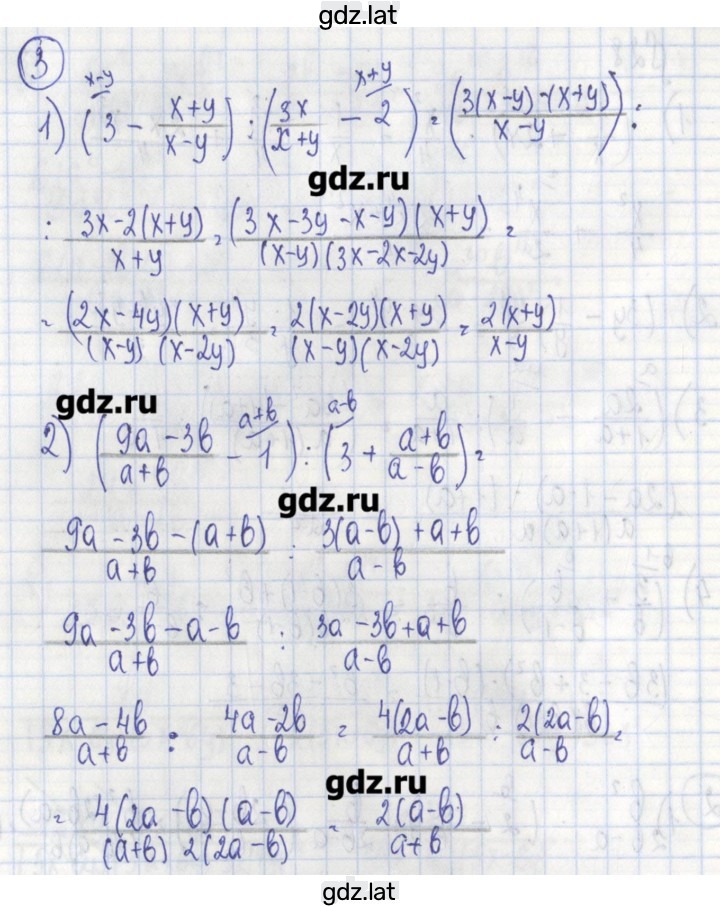 gdz.lat
3
x-y x+y
1) (3 - x+y/x-y) : (3x/x+y - 2) = (3(x-y)-(x+y)/x-y) :
gdz.ru
: 3x-2(x+y)/x+y = (3x-3y-x-y)(x+y)/(x-y)(3x-2x-2y) =
= (2x-4y)(x+y)/(x-y)(x-2y) = 2(x-2y)(x+y)/(x-y)(x-2y) = 2(x+y)/x-y
gdz.ru
a+b a-b
2) (9a-3b/a+b - 1) : (3 + a+b/a-b) =
gdz.ru
9a-3b-(a+b)/a+b : 3(a-b)+a+b/a-b
9a-3b-a-b/a+b : 3a-3b+a+b/a-b
8a-4b/a+b : 4a-2b/a-b = 4(2a-b)/a+b : 2(2a-b)/a-b =
gdz.ru
= 4(2a-b)(a-b)/(a+b) 2(2a-b) = 2(a-b)/a+b
gdz.lat